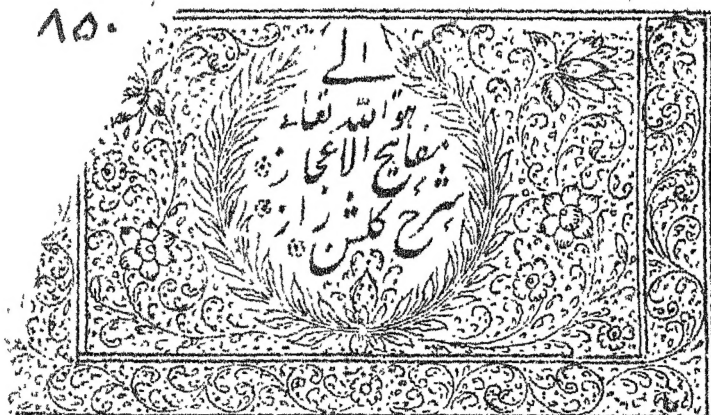 ۸۵۰
الی
هو الله تعالے
مفاتیح الاعجاز
شرح گلشن راز